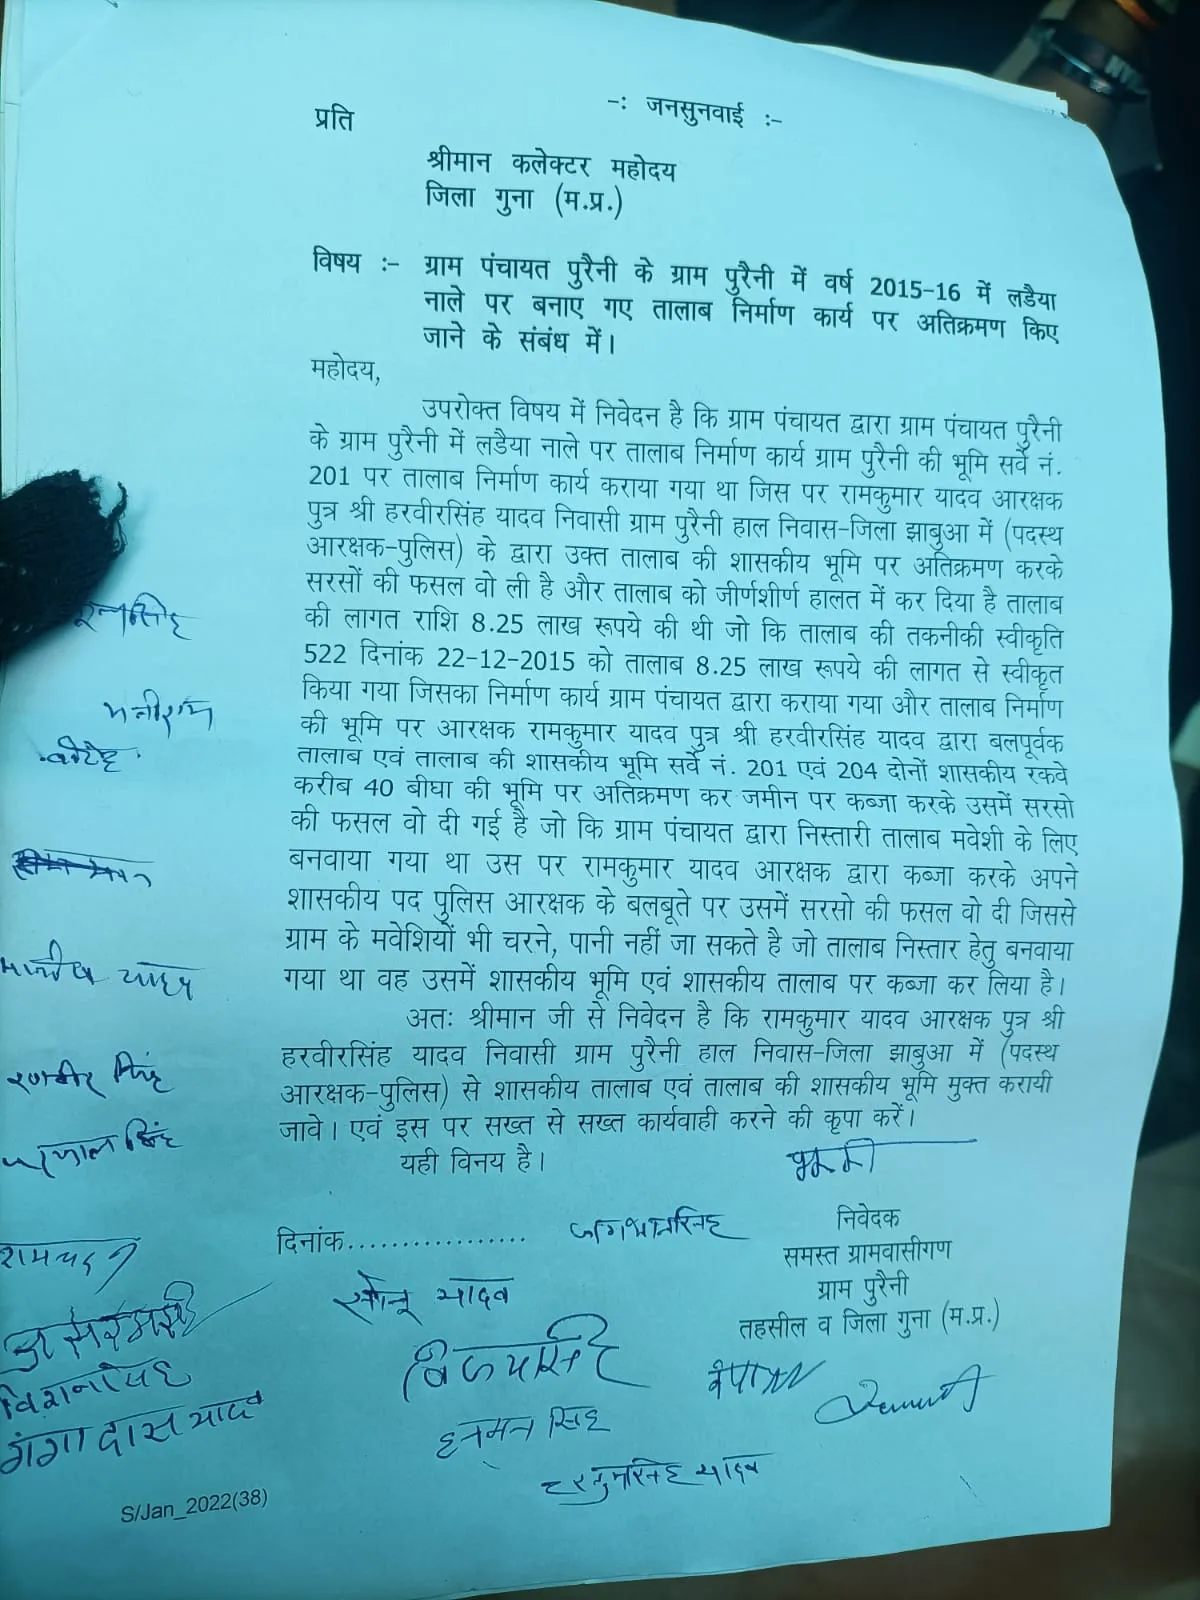 -: जनसुनवाई :-
प्रति
श्रीमान कलेक्टर महोदय
जिला गुना (म.प्र.)
विषय :- ग्राम पंचायत पुरैनी के ग्राम पुरैनी में वर्ष 2015-16 में लडैया
नाले पर बनाए गए तालाब निर्माण कार्य पर अतिक्रमण किए
जाने के संबंध में।
महोदय,
उपरोक्त विषय में निवेदन है कि ग्राम पंचायत द्वारा ग्राम पंचायत पुरैनी
के ग्राम पुरैनी में लडैया नाले पर तालाब निर्माण कार्य ग्राम पुरैनी की भूमि सर्वे नं.
201 पर तालाब निर्माण कार्य कराया गया था जिस पर रामकुमार यादव आरक्षक
पुत्र श्री हरवीरसिंह यादव निवासी ग्राम पुरैनी हाल निवास-जिला झाबुआ में (पदस्थ
आरक्षक-पुलिस) के द्वारा उक्त तालाब की शासकीय भूमि पर अतिक्रमण करके
सरसों की फसल वो ली है और तालाब को जीर्णशीर्ण हालत में कर दिया है तालाब
की लागत राशि 8.25 लाख रूपये की थी जो कि तालाब की तकनीकी स्वीकृति
522 दिनांक 22-12-2015 को तालाब 8.25 लाख रूपये की लागत से स्वीकृत
किया गया जिसका निर्माण कार्य ग्राम पंचायत द्वारा कराया गया और तालाब निर्माण
की भूमि पर आरक्षक रामकुमार यादव पुत्र श्री हरवीरसिंह यादव द्वारा बलपूर्वक
तालाब एवं तालाब की शासकीय भूमि सर्वे नं. 201 एवं 204 दोनों शासकीय रकवे
करीब 40 बीघा की भूमि पर अतिक्रमण कर जमीन पर कब्जा करके उसमें सरसो
की फसल वो दी गई है जो कि ग्राम पंचायत द्वारा निस्तारी तालाब मवेशी के लिए
बनवाया गया था उस पर रामकुमार यादव आरक्षक द्वारा कब्जा करके अपने
शासकीय पद पुलिस आरक्षक के बलबूते पर उसमें सरसो की फसल वो दी जिससे
ग्राम के मवेशियों भी चरने, पानी नहीं जा सकते है जो तालाब निस्तार हेतु बनवाया
गया था वह उसमें शासकीय भूमि एवं शासकीय तालाब पर कब्जा कर लिया है।
अतः श्रीमान जी से निवेदन है कि रामकुमार यादव आरक्षक पुत्र श्री
हरवीरसिंह यादव निवासी ग्राम पुरैनी हाल निवास-जिला झाबुआ में (पदस्थ
आरक्षक-पुलिस) से शासकीय तालाब एवं तालाब की शासकीय भूमि मुक्त करायी
जावे। एवं इस पर सख्त से सख्त कार्यवाही करने की कृपा करें।
यही विनय है।
दिनांक.................
निवेदक
समस्त ग्रामवासीगण
ग्राम पुरैनी
तहसील व जिला गुना (म.प्र.)
मनीराम
यादव
रणवीर सिंह
जगभानसिंह
सोनू यादव
विजयसिंह
हनमन सिंह
गंगादास यादव
S/Jan_2022(38)